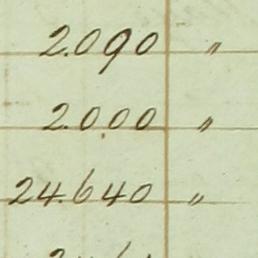 2.090 "
2.000 "
24.640 "